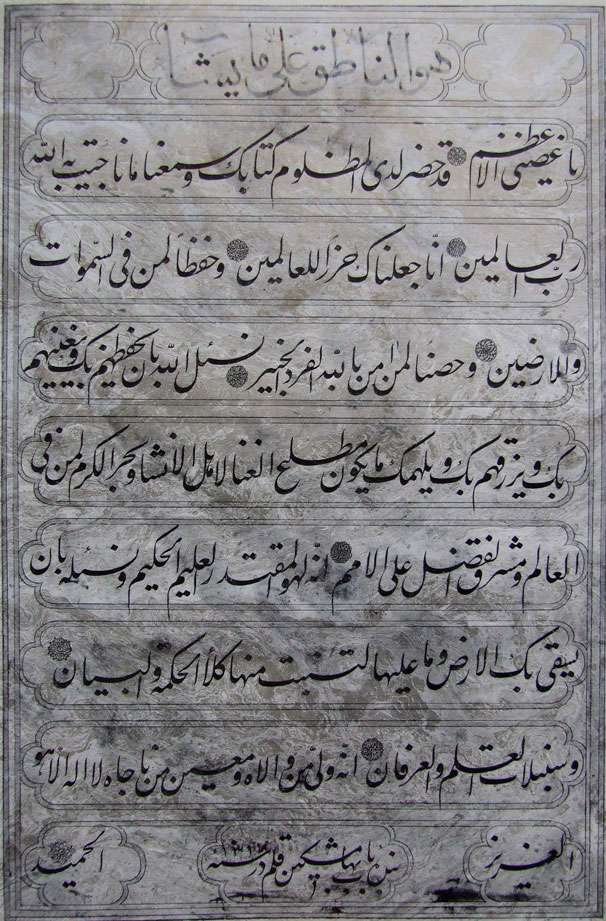 هو الناطق علی ما یشآء
یا غصنی الاعظم قد حضر لدی المظلوم کتابک و سمعنا ما ناجیت به الله
رب العالمین انا جعلناک حرزا للعالمین و حفظا لمن فی السموات
والارضین و حصنا لمن امن بالله الفرد الخبیر نسئل الله بان یحفظهم بک و یغنیهم
بک و یرزقهم بک و یلهمک ما یکون مطلع الغنا لاهل الانشا و بحر الکرم لمن فی
العالم و مشرق الفضل علی الامم انه لهو المقتدر العلیم الحکیم و نسئله بان
یسقی بک الارض و ما علیها لتنبت منها کلأ الحکمة و البیان
و سنبلات العلم و العرفان انه ولی من والاه و معین من ناجاه لا اله الا هو
العزیز الحمید
قلم در سنه